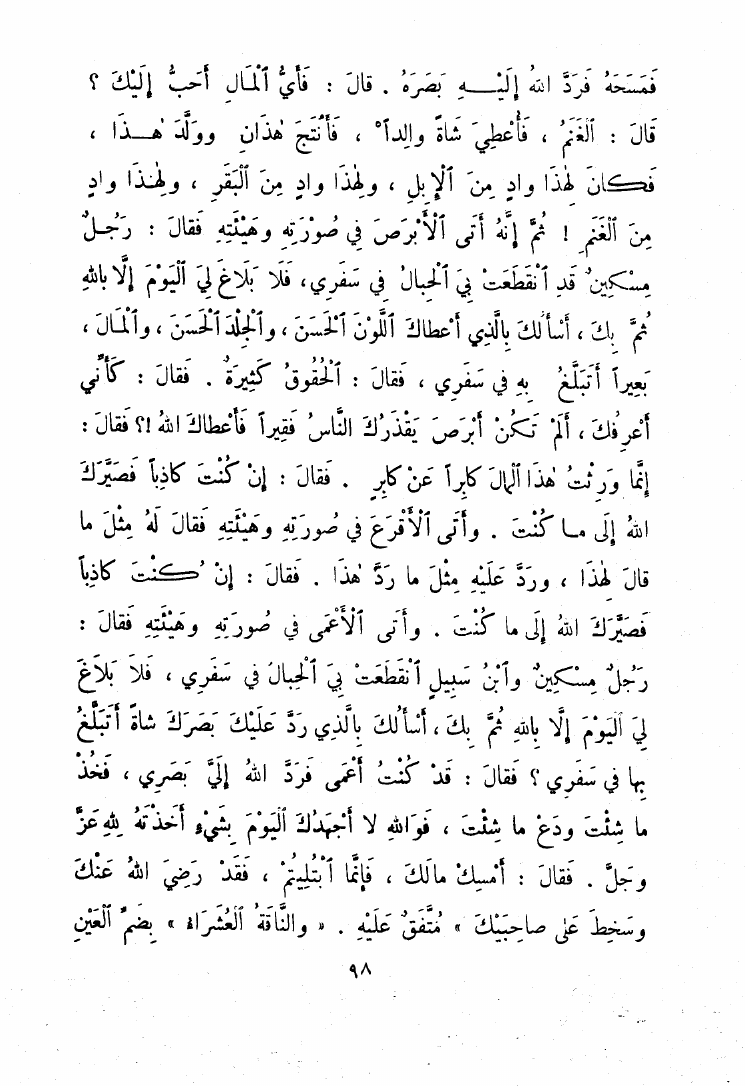 فَمَسَحَهُ فَرَدَّ اللهُ إِلَيْـــهِ بَصَرَهُ . قالَ : فَأَيُّ ٱلْمَـالِ أَحَبُّ إِلَيْكَ ؟
قَالَ : ٱلْغَنَمُ ، فَأُعْطِيَ شَاةً والِداً ، فَأَنْتَجَ هٰذَانِ وَوَلَّدَ هٰــذَا ،
فَكانَ لِهٰذَا وادٍ مِنَ ٱلْإِبِلِ ، ولِهٰذَا وادٍ مِنَ ٱلْبَقَرِ ، ولِهٰذَا وادٍ
مِنَ ٱلْغَنَمِ ! ثُمَّ إِنَّهُ أَتَى ٱلْأَبْرَصَ فِي صُوْرَتِهِ وهَيْئَتِهِ فَقالَ : رَجُلٌ
مِسْكِينٌ قَدِ ٱنْقَطَعَتْ بِيَ ٱلْحِبالُ فِي سَفَرِي، فَلَا بَلَاغَ لِيَ ٱلْيَوْمَ إِلَّا بِاللهِ
ثُمَّ بِكَ ، أَسْأَلُكَ بِالَّذِي أَعْطاكَ ٱللَّوْنَ ٱلْحَسَنَ ، وٱلْجِلْدَ ٱلْحَسَنَ ، وٱلْمَالَ ،
بَعِيراً أَتَبَلَّغُ بِهِ فِي سَفَرِي ، فَقالَ : ٱلْحُقُوقُ كَثِيرَةٌ . فَقالَ : كَأَنِّي
أَعْرِفُكَ ، أَلَمْ تَكُنْ أَبْرَصَ يَقْذَرُكَ النَّاسُ فَقِيراً فَأَعْطاكَ اللهُ !؟ فَقالَ :
إِنَّمَا وَرِثْتُ هٰذَا ٱلْمالَ كابِراً عَنْ كابِرٍ . فَقالَ : إِنْ كُنْتَ كاذِباً فَصَيَّرَكَ
اللهُ إِلَى مـا كُنْتَ . وأَتَى ٱلْأَقْرَعَ فِي صُورَتِهِ وهَيْئَتِهِ فَقالَ لَهُ مِثْلَ ما
قالَ لِهٰذَا ، ورَدَّ عَلَيْهِ مِثْلَ ما رَدَّ هٰذَا . فَقالَ : إِنْ كُنْتَ كاذِباً
فَصَيَّرَكَ اللهُ إِلَى ما كُنْتَ . وأَتَى ٱلْأَعْمَى فِي صُورَتِهِ وهَيْئَتِهِ فَقالَ :
رَجُلٌ مِسْكِينٌ وٱبْنُ سَبِيلٍ ٱنْقَطَعَتْ بِيَ ٱلْحِبالُ فِي سَفَرِي ، فَلاَ بَلاَغَ
لِيَ ٱلْيَوْمَ إِلَّا بِاللهِ ثُمَّ بِكَ ، أَسْأَلُكَ بِالَّذِي رَدَّ عَلَيْكَ بَصَرَكَ شاةً أَتَبَلَّغُ
بِها فِي سَفَرِي ؟ فَقالَ : قَدْ كُنْتُ أَعْمَى فَرَدَّ اللهُ إِلَيَّ بَصَرِي ، فَخُذْ
ما شِئْتَ ودَعْ ما شِئْتَ ، فَوَاللهِ لا أَجْهَدُكَ ٱلْيَوْمَ بِشَيْءٍ أَخَذْتَهُ لِلهِ عَزَّ
وجَلَّ . فَقالَ : أَمْسِكْ مالَكَ ، فَإِنَّمَا ٱبْتُلِيتُمْ ، فَقَدْ رَضِيَ اللهُ عَنْكَ
وسَخِطَ عَلَى صاحِبَيْكَ » مُتَّفَقٌ عَلَيْهِ . « والنَّاقَةُ ٱلْعُشَرَاءُ » بِضَمِّ ٱلْعَيْنِ
٩٨